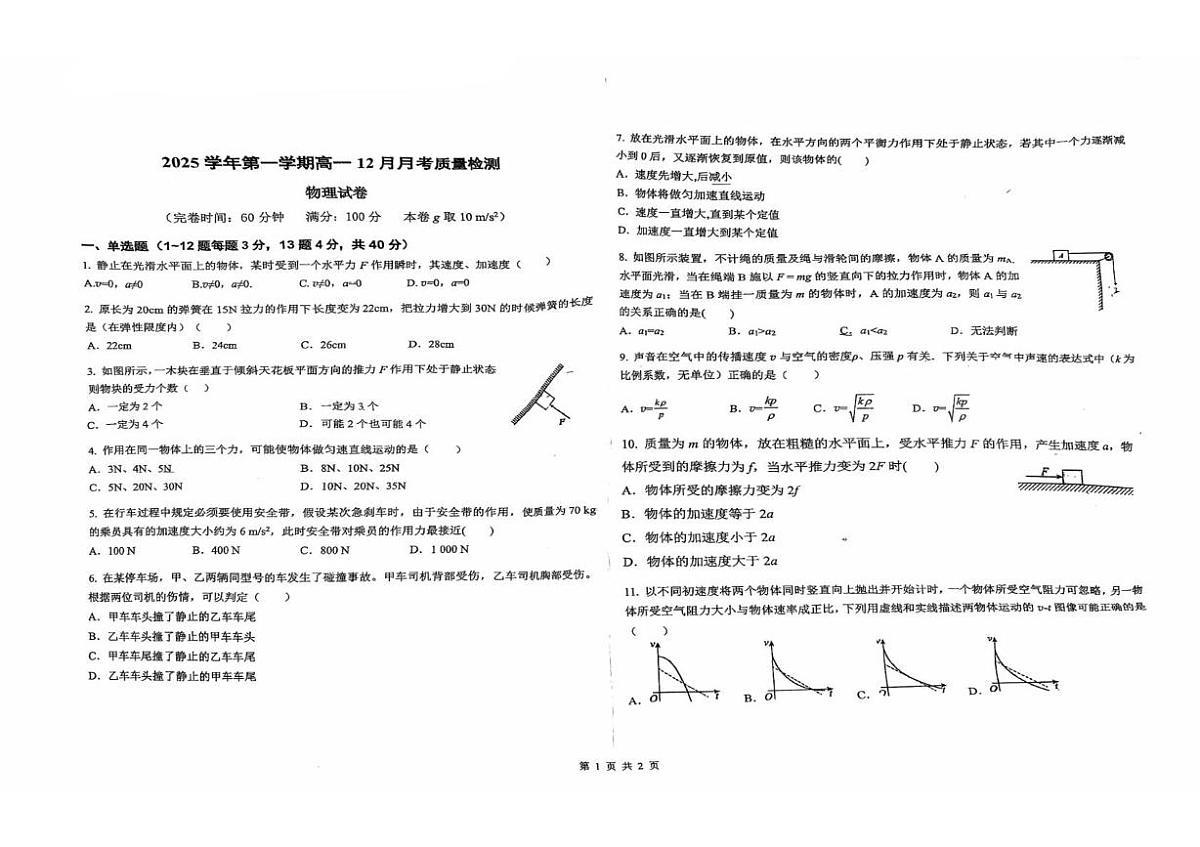 2025 学年第一学期高一 12 月月考质量检测
物理试卷
（完卷时间：60 分钟 满分：100 分 本卷 g 取 10 m/s²）
一、单选题（1~12 题每题 3 分，13 题 4 分，共 40 分）
1. 静止在光滑水平面上的物体，某时受到一个水平力 F 作用瞬时，其速度、加速度（ ）
A.v=0，a≠0 B.v≠0，a≠0. C. v≠0，a=0 D. v=0，a=0
2. 原长为 20cm 的弹簧在 15N 拉力的作用下长度变为 22cm，把拉力增大到 30N 的时候弹簧的长度
是（在弹性限度内）（ ）
A．22cm B．24cm C．26cm D．28cm
3. 如图所示，一木块在垂直于倾斜天花板平面方向的推力 F 作用下处于静止状态
则物块的受力个数（ ）
A．一定为 2 个 B．一定为 3 个
C．一定为 4 个 D．可能 2 个也可能 4 个
F
4. 作用在同一物体上的三个力，可能使物体做匀速直线运动的是（ ）
A．3N、4N、5N B．8N、10N、25N
C．5N、20N、30N D．10N、20N、35N
5. 在行车过程中规定必须要使用安全带，假设某次急刹车时，由于安全带的作用，使质量为 70 kg
的乘员具有的加速度大小约为 6 m/s²，此时安全带对乘员的作用力最接近( )
A．100 N B．400 N C．800 N D．1 000 N
6. 在某停车场，甲、乙两辆同型号的车发生了碰撞事故。甲车司机背部受伤，乙车司机胸部受伤。
根据两位司机的伤情，可以判定（ ）
A．甲车车头撞了静止的乙车车尾
B．乙车车头撞了静止的甲车车头
C．甲车车尾撞了静止的乙车车尾
D．乙车车头撞了静止的甲车车尾
7. 放在光滑水平面上的物体，在水平方向的两个平衡力作用下处于静止状态，若其中一个力逐渐减
小到 0 后，又逐渐恢复到原值，则该物体的( )
A．速度先增大,后减小
B．物体将做匀加速直线运动
C．速度一直增大,直到某个定值
D．加速度一直增大到某个定值
8. 如图所示装置，不计绳的质量及绳与滑轮间的摩擦，物体 A 的质量为 mA.
水平面光滑，当在绳端 B 施以 F＝mg 的竖直向下的拉力作用时，物体 A 的加
速度为 a₁；当在 B 端挂一质量为 m 的物体时，A 的加速度为 a₂，则 a₁ 与 a₂
的关系正确的是( )
A．a₁=a₂ B．a₁>a₂ C．a₁<a₂ D．无法判断
A
9. 声音在空气中的传播速度 v 与空气的密度ρ、压强 p 有关．下列关于空气中声速的表达式中（k 为
比例系数，无单位）正确的是（ ）
A．v=kρ/p B．v=kp/ρ C．v=√(kρ/p) D．v=√(kp/ρ)
10. 质量为 m 的物体，放在粗糙的水平面上，受水平推力 F 的作用，产生加速度 a，物
体所受到的摩擦力为 f，当水平推力变为 2F 时( )
A．物体所受的摩擦力变为 2f
B．物体的加速度等于 2a
C．物体的加速度小于 2a
D．物体的加速度大于 2a
F
11. 以不同初速度将两个物体同时竖直向上抛出并开始计时，一个物体所受空气阻力可忽略，另一物
体所受空气阻力大小与物体速率成正比，下列用虚线和实线描述两物体运动的 v-t 图像可能正确的是
（ ）
A． v O t B． v O t C． v O t D． v O t
第 1 页 共 2 页